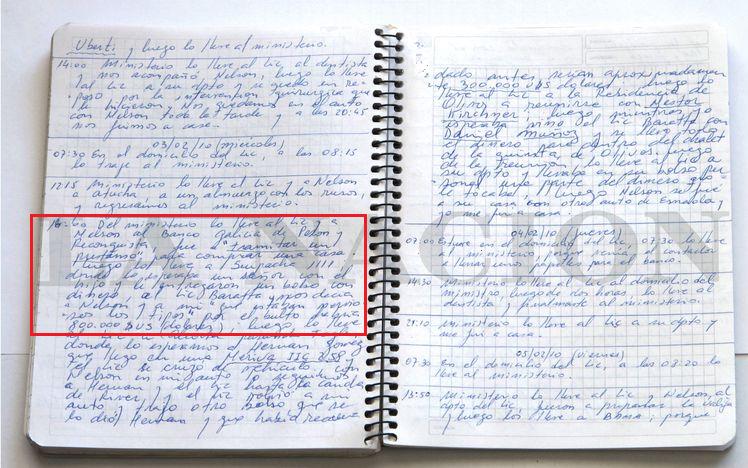 Uberti y luego lo lleve al ministerio.
14:00 Ministerio lo lleve al Lic al dentista
y nos acompañó Nelson, luego lo lleve
al Lic a su dpto y se quedó en re-
poso por la intervención quirurgica que
le hicieron, Nos quedamos en el auto
con Nelson toda la tarde y a las 20:45
nos fuimos a casa.
03/02/10 (miercoles)
07:30 En el domicilio del Lic, a las 08:15
lo traje al ministerio.
12:15 Ministerio lo lleve al Lic y a Nelson
a un almuerzo con los rusos,
y regresamos al ministerio.
Del ministerio lo lleve al Lic y a
Nelson al Banco Galicia de Peron y
Reconquista, que "tramitar un
prestamo" para comprar una casa.
Luego los lleve a Suipacha 1111,
donde lo esperaba un señor con el
hijo y le entregaron un bolso con
dinero, al Lic Baratta y nos decia
a Nelson y a mi que estaba
"por los 7 tipos" por el bulto
800.000 U$S (dolares), luego, lo lleve
donde lo esperamos a Hernan Gomez
que llego en una Meriva IIG 258,
y el Lic se cruzo de vehiculo, con
Nelson en mi auto seguimos
a Hernan y el Lic hasta la cancha
de River, y el Lic volvió a mi
auto y trajo otro bolso que se
lo dió Hernan y que había recauda
dado antes serian aproximadamen
te 300.000 U$S dolares, luego lo
lleve al Lic a la Residencia de
Olivos a reunirse con Nestor
Kirchner, luego
esperaba vino del Lic Baratta con
Daniel Muñoz y se llevo todo
el dinero para dentro del chalet
de la quinta de Olivos, luego
de la reunion, lo lleve al Lic a
su dpto y llevaba en su bolso per
sonal una parte del dinero que
y luego Nelson se fué
a su casa con otro auto de Enarsa y
yo me fui a casa.
04/02/10 (jueves)
07:00 Estuve en el domicilio del Lic, 07:30 lo lleve
al ministerio porque venía el contador
a llenar unos papeles para el banco.
14:30 Ministerio lo lleve al Lic al domicilio del
ministro, luego de dos horas lo lleve al
dentista y finalmente al ministerio.
21:10 Ministerio lo lleve al Lic a su dpto. y
me fui a casa.
05/02/10 (viernes)
07:30 En el domicilio del Lic, a las 08:20 lo
lleve al ministerio.
13:50 Ministerio lo lleve al Lic y Nelson, al
dpto del Lic, fueron a preparar la valija
y luego los lleve a Bsma; porque
LA NACION